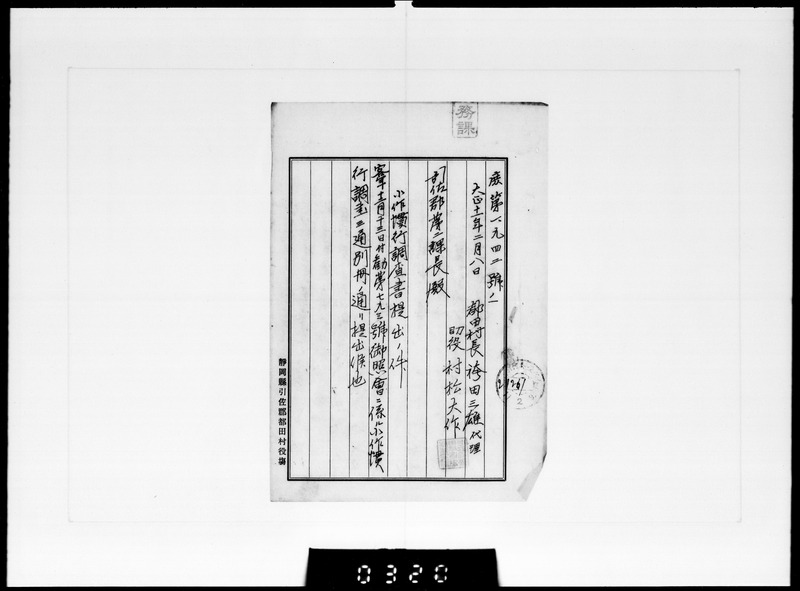 務課
庶第一、九四二號ノ一
大正十一年二月八日
都田村長 袴田三雄代理
助役 村松大作
引佐郡第二課長殿
小作慣行調査書提出ノ件
客年十二月十三日付勸第七九三號御照會ニ係ル小作慣
行調査ニ通別冊ノ通リ提出候也
靜岡縣引佐郡都田村役場
0320